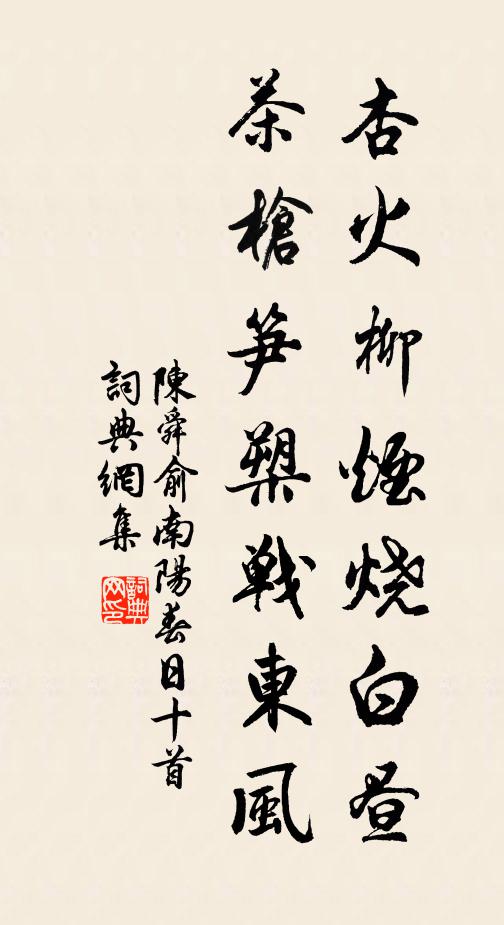 杏火柳煙烧白昼
茶槍笋槊戦東風
陳舜俞南陽春日十首
詞典網集
詞典网印